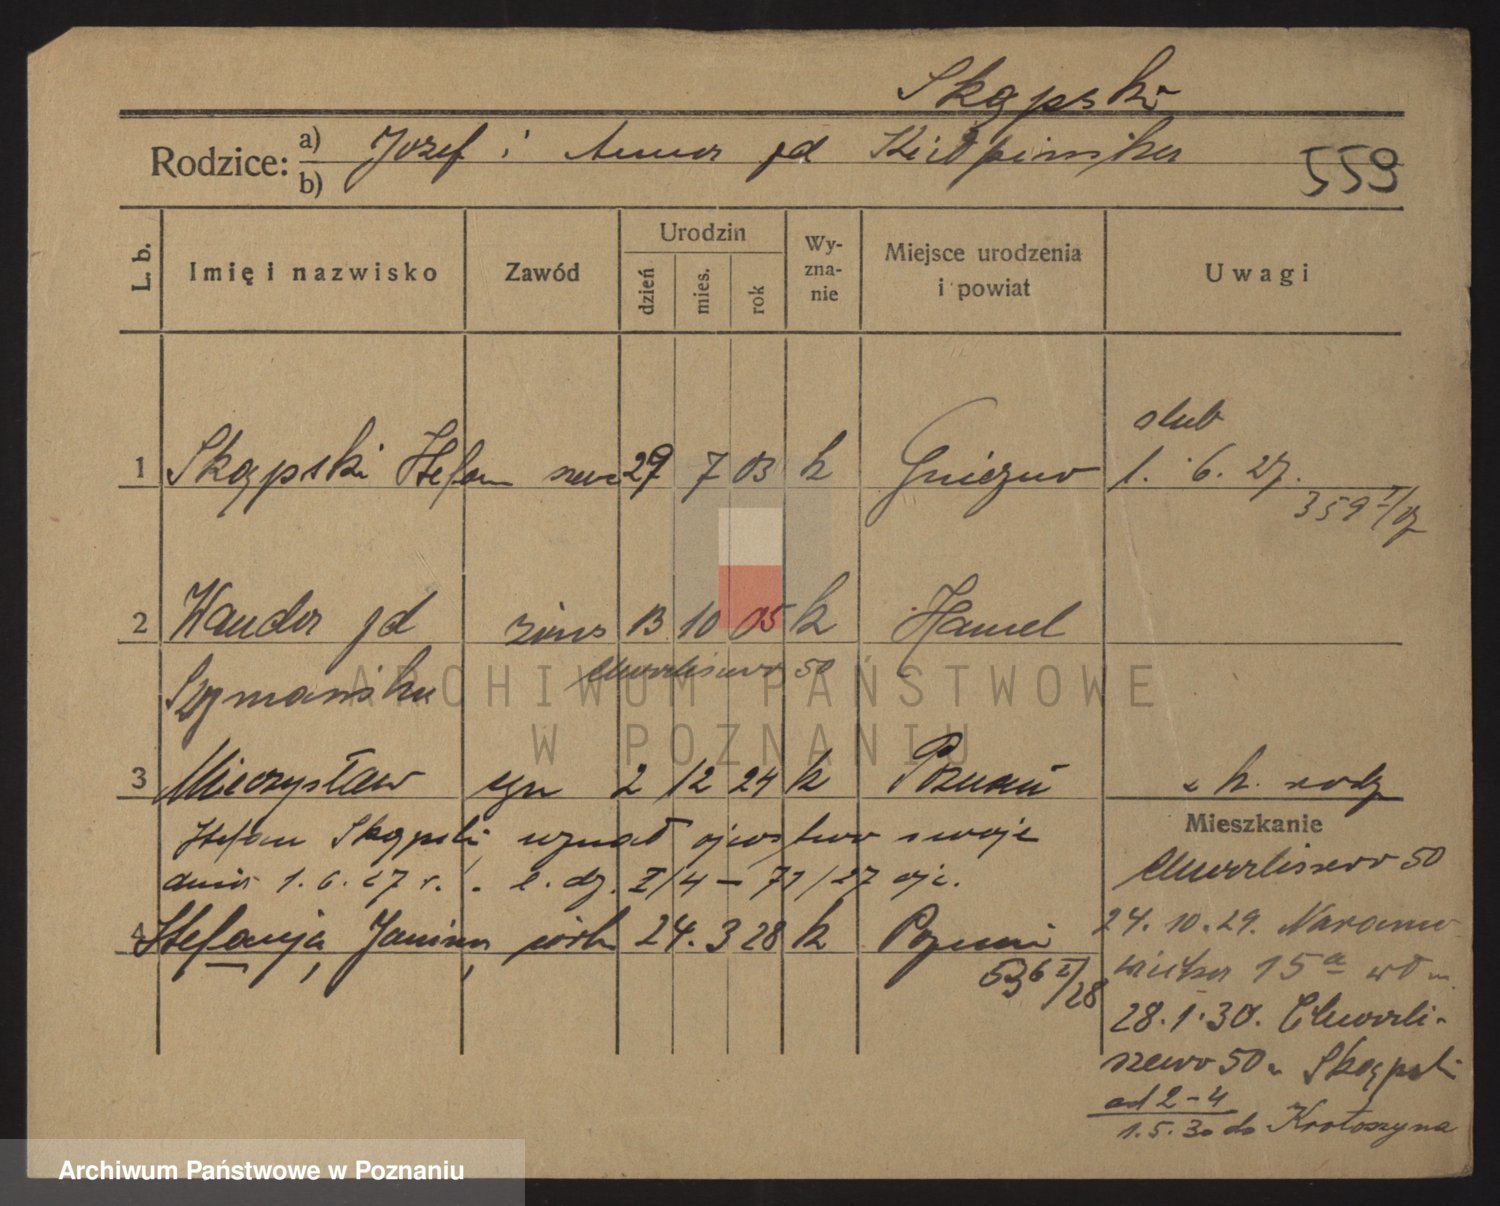 Skąpski
Rodzice: a) Józef i Anna zd Kiełpińska
b)
559
L. b. Imię i nazwisko Zawód Urodzin dzień mies. rok Wy-zna-nie Miejsce urodzenia i powiat Uwagi
ślub
1 Skąpski Stefan szewc 29 7 03 k Gniezno 1. 6. 27.
359 I/27
2 Wanda zd żona 13 10 05 k Hamel
Szymańska Chwaliszewo 50
3 Mieczysław syn 2 12 24 k Poznań k. rodz
Stefan Skąpski uznał ojcostwo swoje
dnia 1.6.27 r. l. dz. I/4 — 71/27
Mieszkanie
Chwaliszewo 50
4 Stefanja, Janina, córka 24. 3 28 k Poznań
536 I/28
24. 10. 29. Naramo-
wicka 15a wł
28.1.30. Chwali-
szewo 50 u Skąpski
ad 2-4
1.5.30 do Krotoszyna
ARCHIWUM PAŃSTWOWE
W POZNANIU
Archiwum Państwowe w Poznaniu